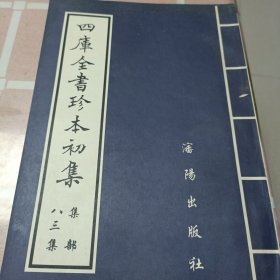 四庫全書珍本初集
集部
八三集
瀋陽出版社